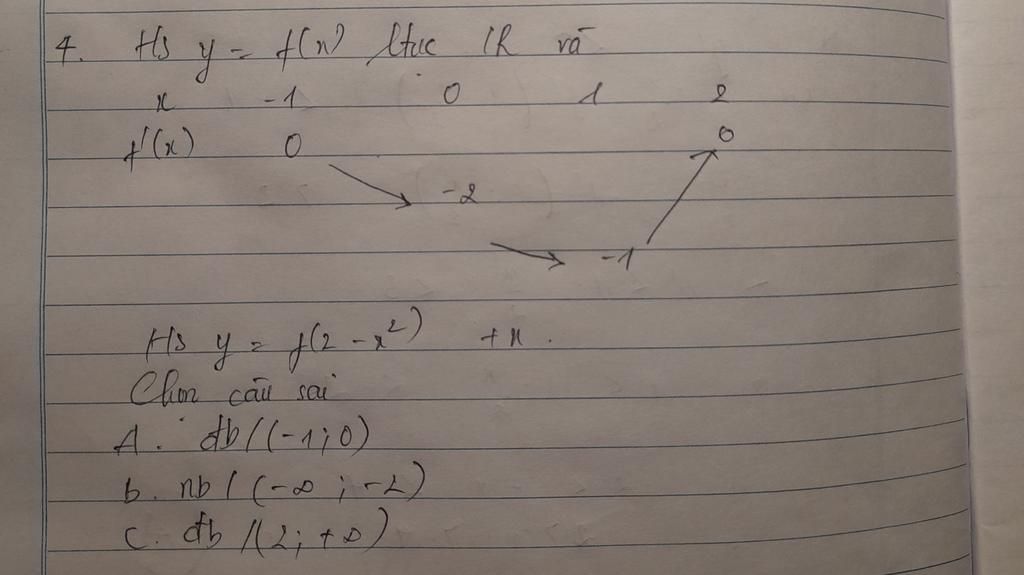 4. Hs y = f(x) ltuc IR và
x -1 0 1 2
f'(x) 0 0
-2
-1
Hs y = f(2 - x²) + x.
Chọn câu sai
A. đb/(-1;0)
b. nb/(-∞; -2)
c. đb/(2; +∞)